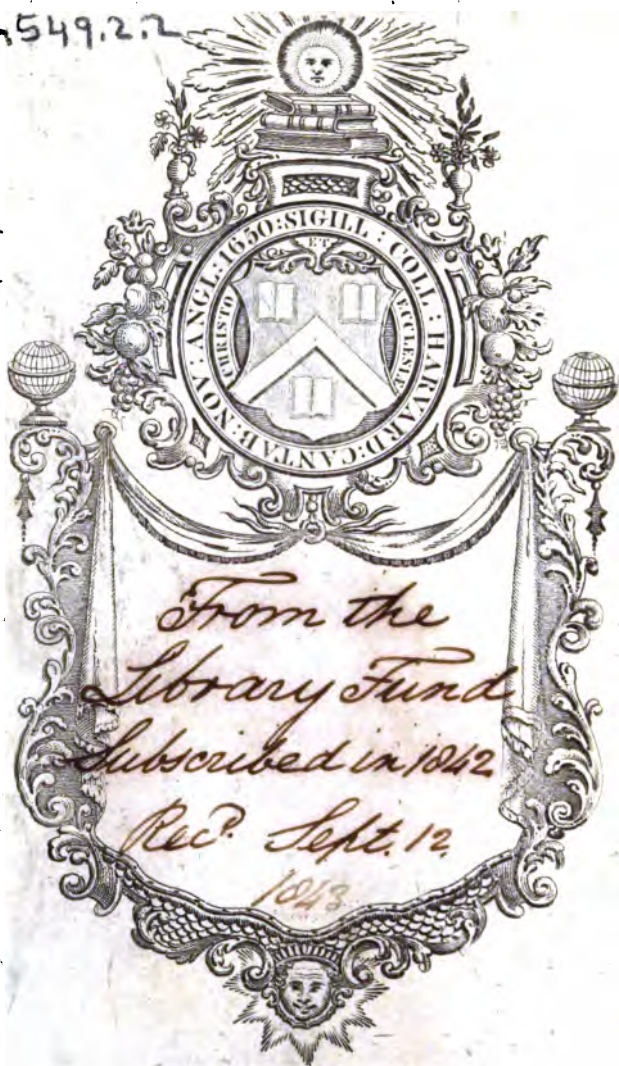 549.2.2
SIGILL : COLL : HARVARD : CANTAB : NOV : ANGL : 1650 :
CHRISTO ET ECCLESIÆ
From the
Library Fund
Subscribed in 1842
Rec'd Sept. 12
1843